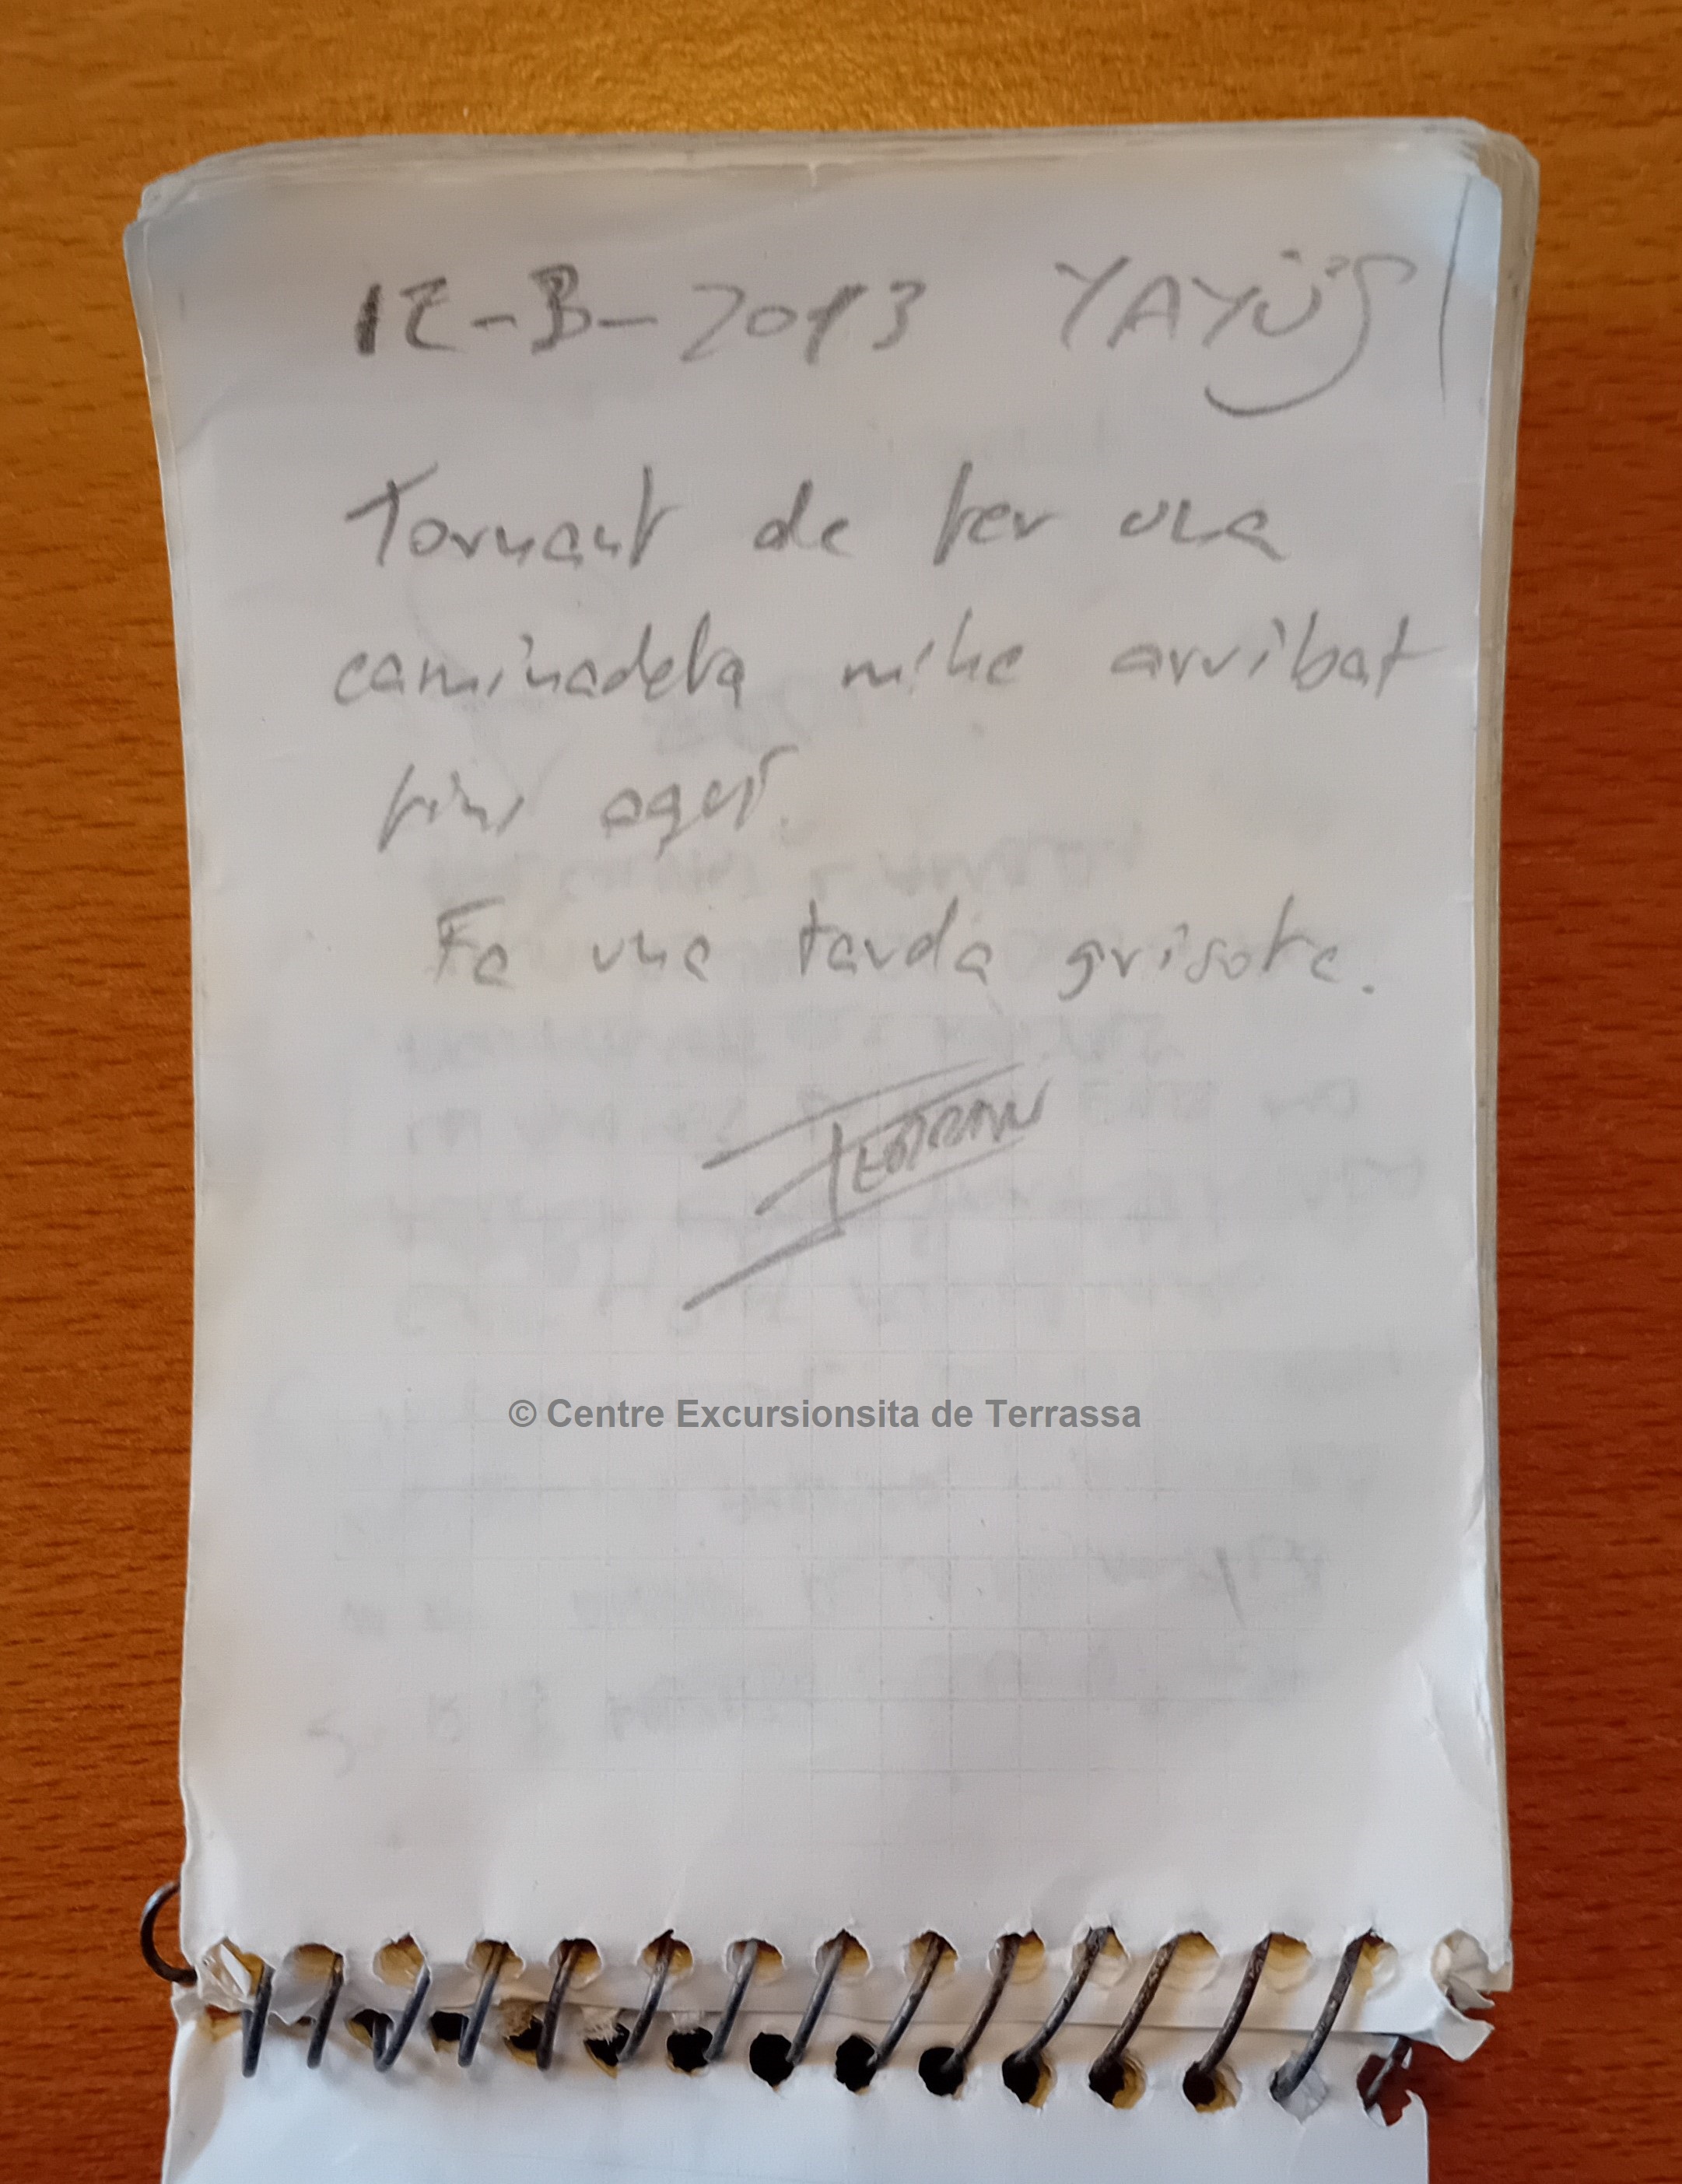 12-3-2013 YAYÜS
Tornant de fer una
caminadeta m'he arribat
fins aquí.
Fa una tarda grisota.
© Centre Excursionsita de Terrassa